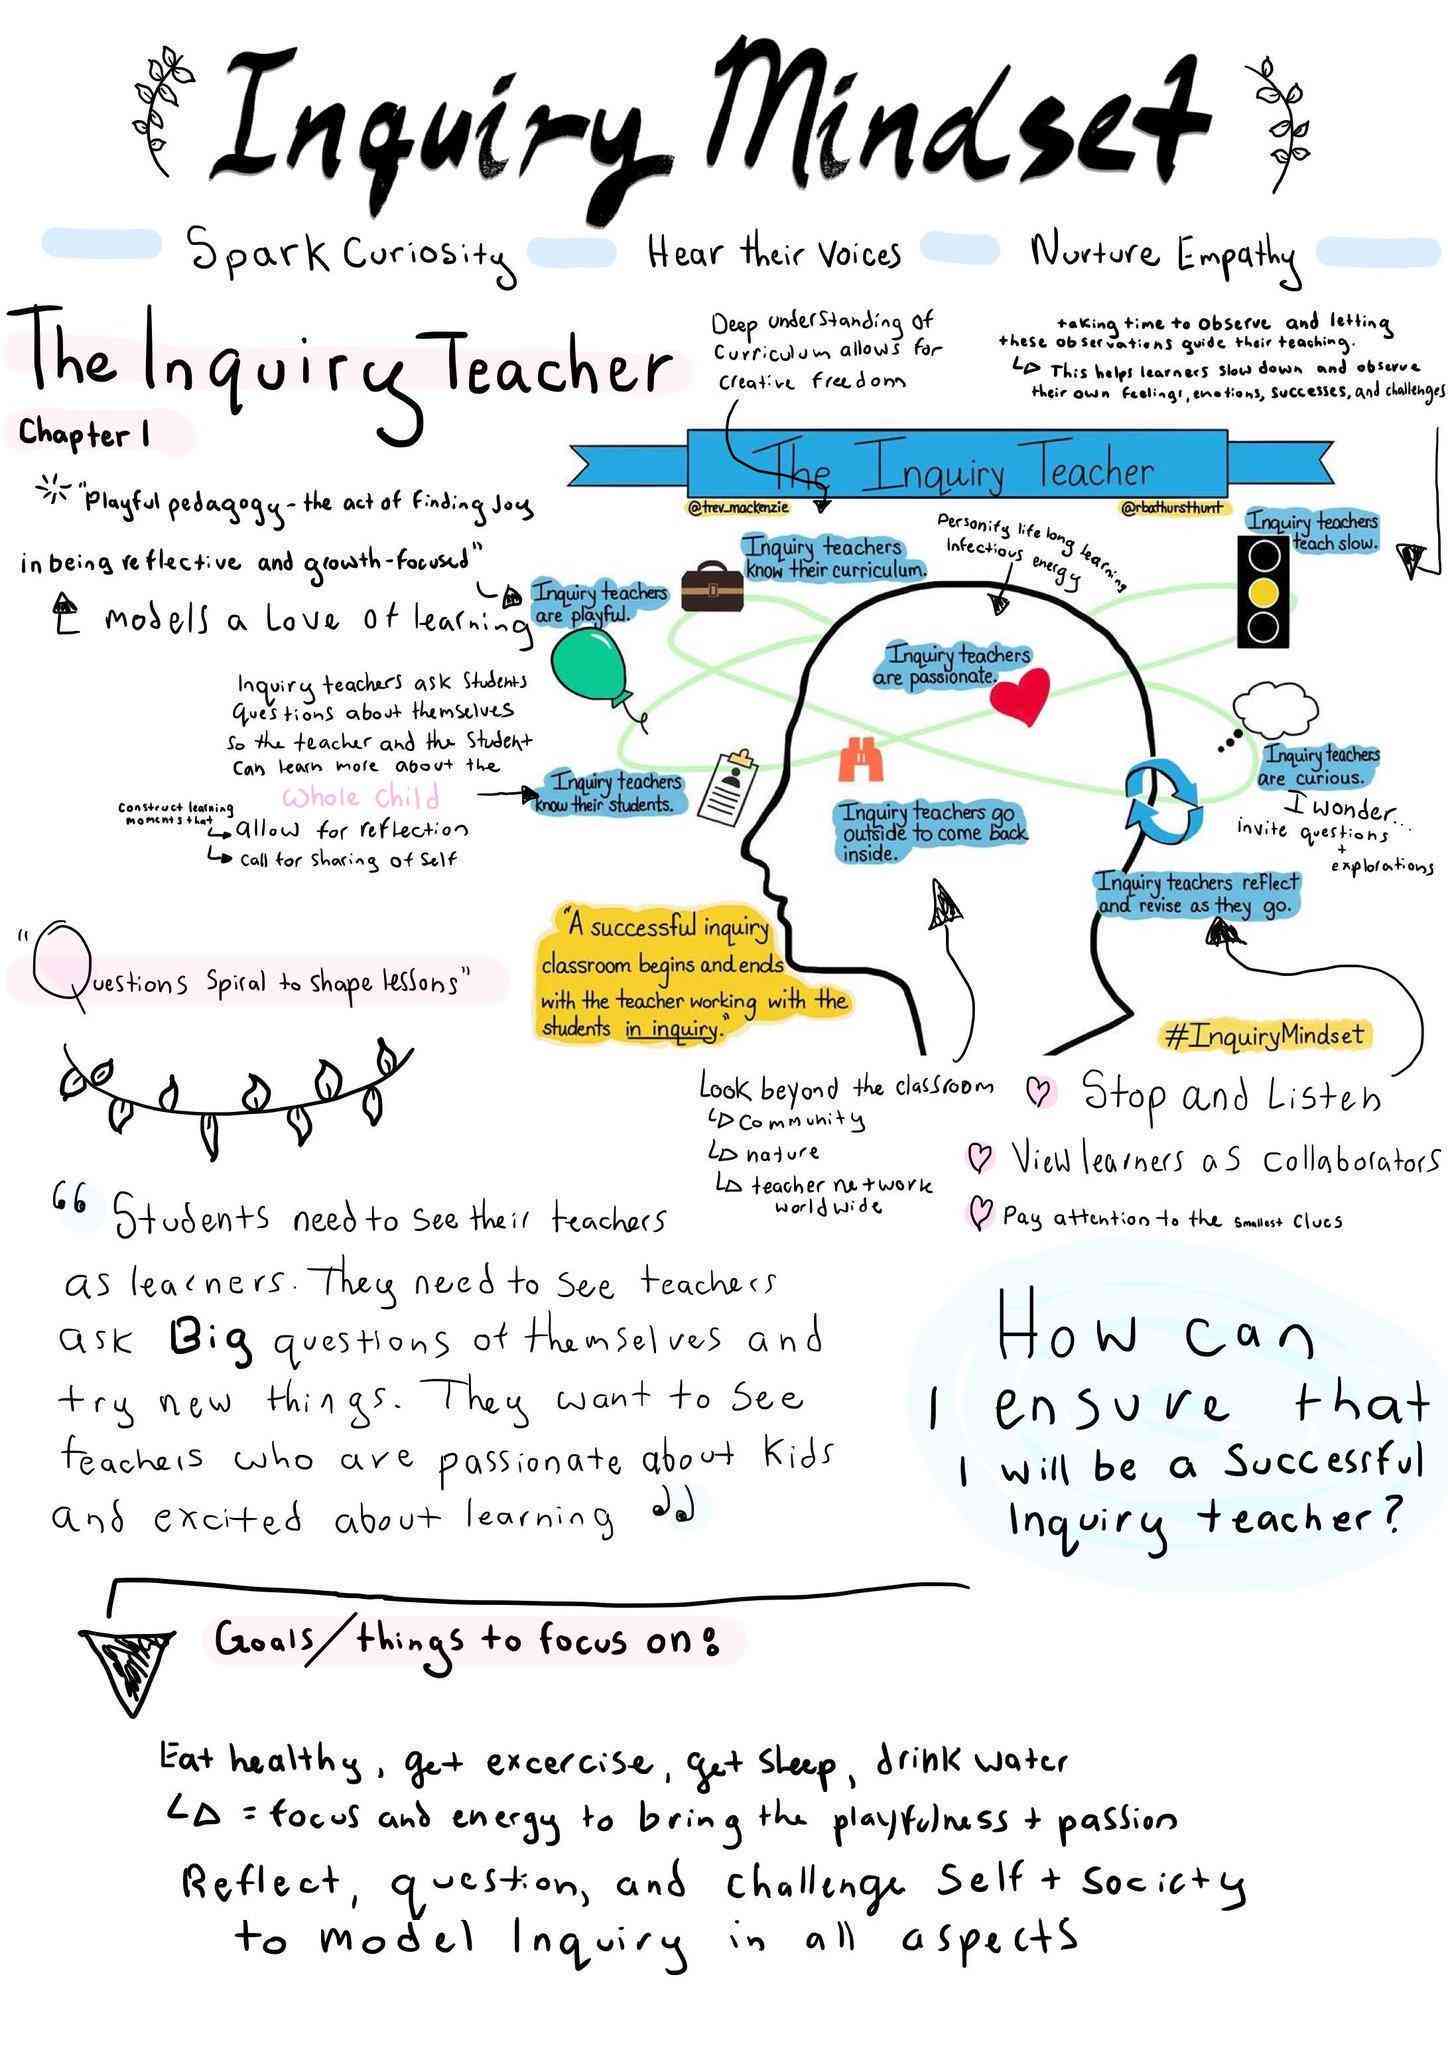 Inquiry Mindset
Spark Curiosity Hear their Voices Nurture Empathy
The Inquiry Teacher
Chapter 1
Deep understanding of
Curriculum allows for
creative freedom
taking time to observe and letting
these observations guide their teaching.
This helps learners slow down and observe
their own feelings, emotions, successes, and challenges
The Inquiry Teacher
@trev_mackenzie
@rbathursthunt
"Playful pedagogy - the act of finding Joy
in being reflective and growth-focused"
models a Love of learning
Inquiry teachers
are playful.
Inquiry teachers
know their curriculum.
Personify life long learning
Infectious energy
Inquiry teachers
teach slow.
Inquiry teachers
are passionate.
Inquiry teachers ask Students
questions about themselves
so the teacher and the student
can learn more about the
whole child
construct learning
moments that
allow for reflection
call for sharing of self
Inquiry teachers
know their students.
Inquiry teachers go
outside to come back
inside.
Inquiry teachers
are curious.
I wonder...
invite questions
+
explorations
Inquiry teachers reflect
and revise as they go.
"A successful inquiry
classroom begins and ends
with the teacher working with the
students in inquiry."
#InquiryMindset
"Questions Spiral to shape lessons"
Look beyond the classroom
community
nature
teacher network
worldwide
Stop and Listen
View learners as collaborators
Pay attention to the smallest clues
"Students need to see their teachers
as learners. They need to see teachers
ask Big questions of themselves and
try new things. They want to see
teachers who are passionate about kids
and excited about learning"
How can
I ensure that
I will be a successful
Inquiry teacher?
Goals/things to focus on:
Eat healthy, get excercise, get sleep, drink water
= focus and energy to bring the playfulness + passion
Reflect, question, and challenge self + society
to model Inquiry in all aspects